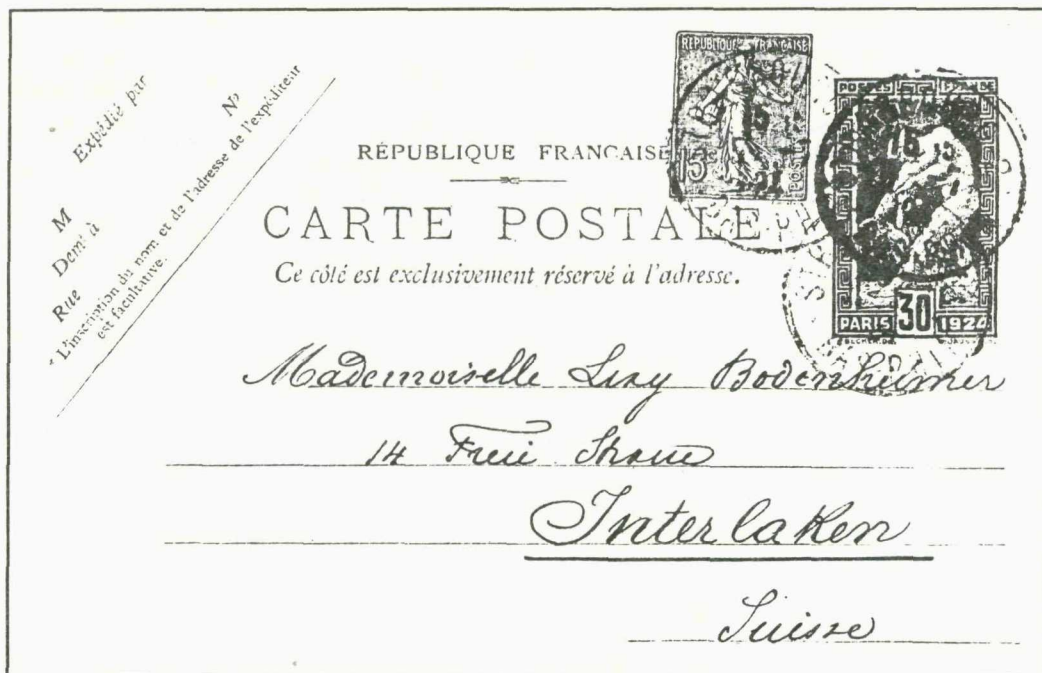 Expédié par
M
Dem^t à
Rue
N°
L'inscription du nom et de l'adresse de l'expéditeur
est facultative.
RÉPUBLIQUE FRANÇAISE
15
POSTES
RÉPUBLIQUE FRANCAISE
CARTE POSTALE
Ce côté est exclusivement réservé à l'adresse.
POSTES
PARIS 30 1924
Mademoiselle Lizy Bodenheimer
14 Freie Strasse
Interlaken
Suisse